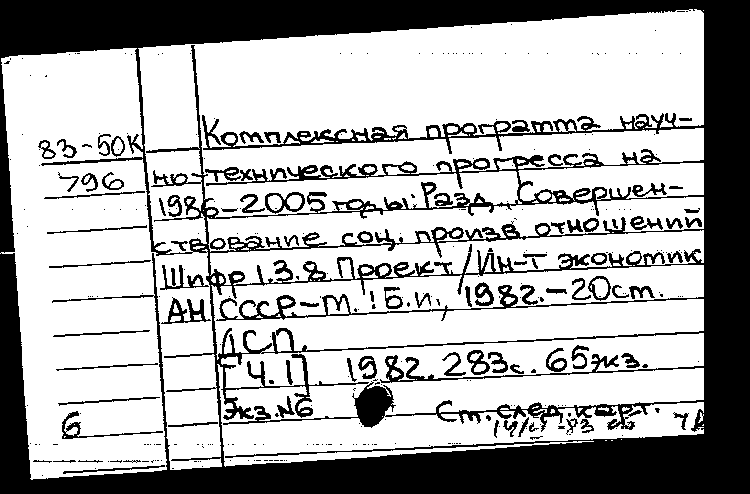 83-50К Комплексная программа науч-
796 но-технического прогресса на
1986-2005 годы: Разд. Совершен-
ствование соц. произв. отношений
Шифр 1.3.8 Проект / Ин-т экономик
АН СССР.-М.: Б.и., 1982.-20см.
ДСП.
[Ч.1]. 1982. 283с. 65экз.
Экз.N6
6 Ст. след. карт.